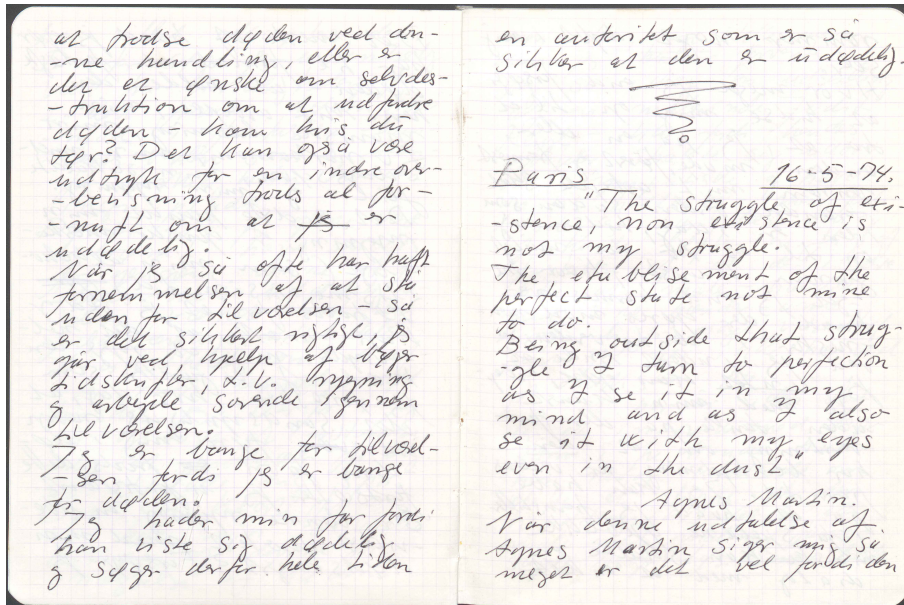 at trodse døden ved den-
-ne handling, eller er
det et ønske om selvdes-
-truktion om at udfordre
døden – kom hvis du
tør? Det kan også være
udtryk for en indre over-
-bevisning trods al for-
-nuft om at jeg er
udødelig.
Når jeg så ofte har haft
fornemmelsen af at stå
uden for tilværelsen – så
er det sikkert rigtigt, jeg
går ved hjælp af bøger
tidskrifter, t.v. rygning
og arbejde sovende gennem
tilværelsen.
Jeg er bange for tilværel-
-sen fordi jeg er bange
for døden.
Jeg hader min far fordi
han viste sig dødelig
og søger derfor hele tiden
en autoritet som er så
sikker at den er udødelig.
Paris 16-5-74.
"The struggle of exi-
-stence, non existence is
not my struggle.
The etablisement of the
perfect state not mine
to do.
Being outside that strug-
-gle I turn to perfection
as I se it in my
mind and as I also
se it with my eyes
even in the dust"
Agnes Martin.
Når denne udtalelse af
Agnes Martin siger mig så
meget er det vel fordi den